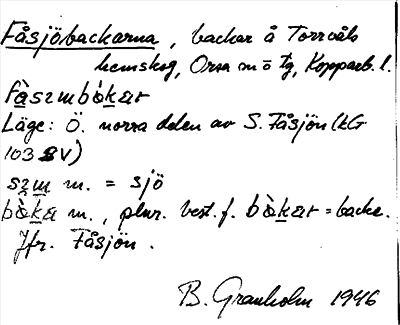 Fåsjöbackarna, backar å Torrvåls
hemskog, Orsa sn ö tg, Kopparb. l.
fàszmbòkær
Läge: Ö. norra delen av S. Fåsjön (kG
103 SV)
szm m. = sjö
bòkæ m., plur. best. f. bòkær = backe.
Jfr. Fåsjön.
B. Granholm 1946